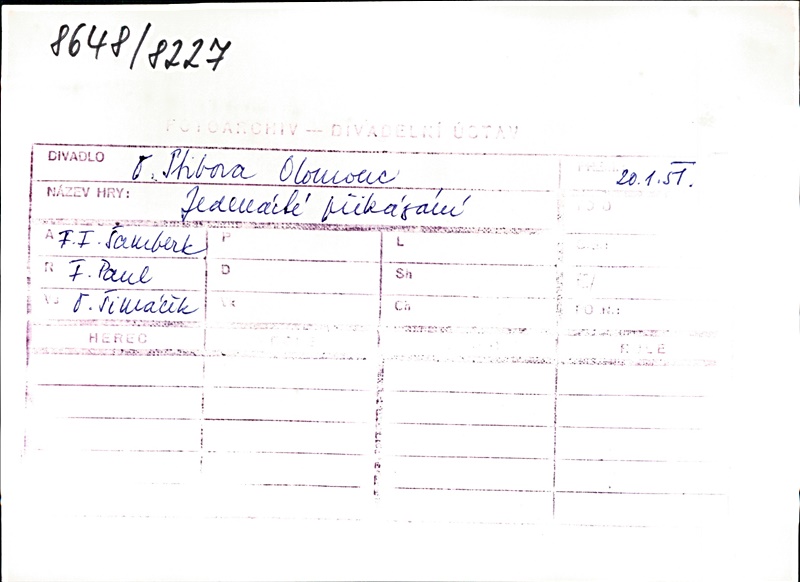 8648/8227
FOTOARCHIV — DIVADELNÍ ÚSTAV
DIVADLO O. Stibora Olomouc 20.1.51.
NÁZEV HRY: Jedenácté přikázání
A F.F. Šamberk P L
R F. Paul D Sh
O. Šimáčík Ch FOTO:
HEREC ROLE